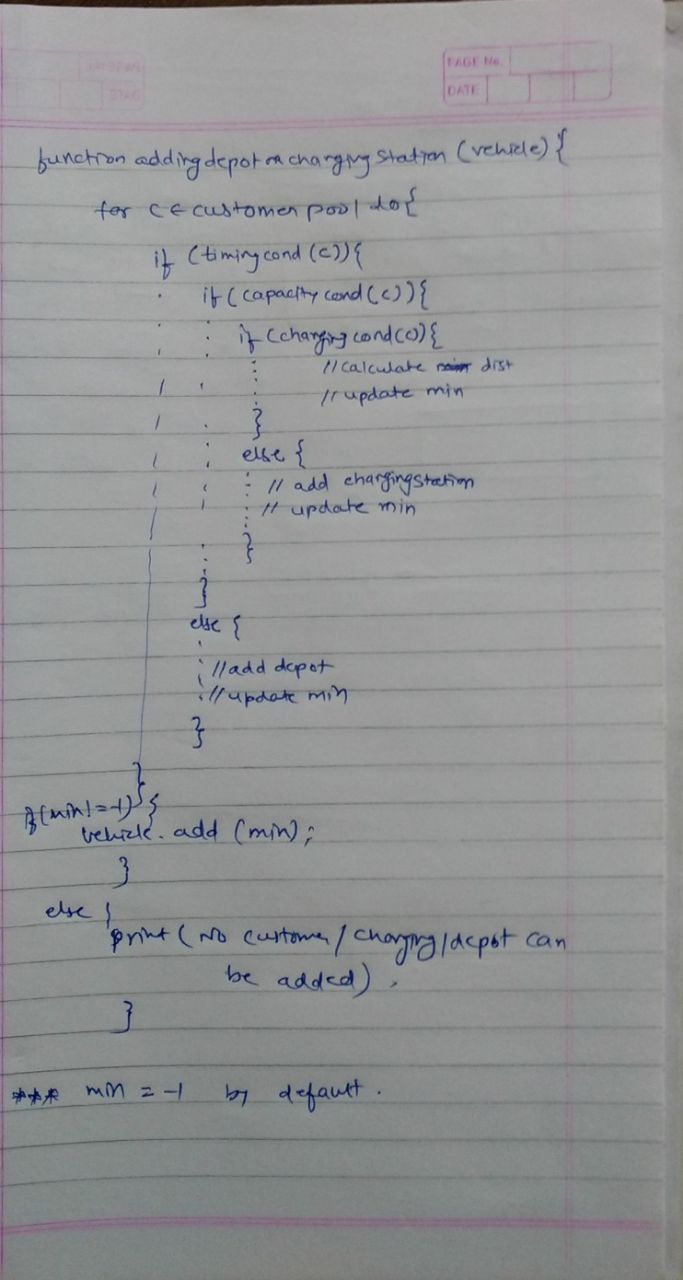 PAGE No.
DATE
function adding depot or charging station (vehicle) {
for c ∈ customer pool do {
if (timing cond (c)) {
if (capacity cond (c)) {
if (charging cond (c)) {
// calculate dist
// update min
}
else {
// add chargingstation
// update min
}
}
else {
// add depot
// update min
}
}
if (min != -1) {
vehicle. add (min);
}
else {
print ( No customer / charging / depot can
be added) .
}
*** min = -1 by default.